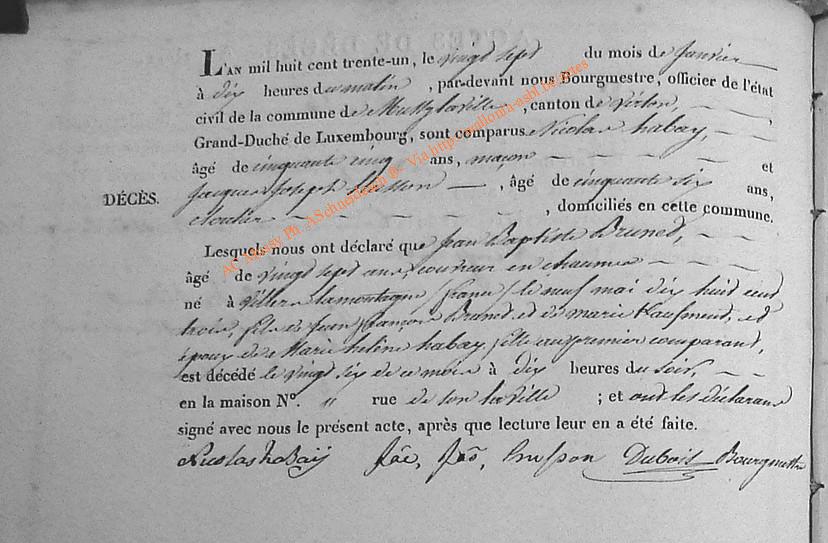 L'AN mil huit cent trente-un, le vingt sept du mois de janvier
à dix heures du matin, par-devant nous Bourgmestre, officier de l'état
civil de la commune de Mussy la ville, canton de virton,
Grand-Duché de Luxembourg, sont comparus Nicolas habay,
âgé de cinquante cinq ans, maçon et
jacques joseph , âgé de cinquante six ans,
DÉCÈS.
cloutier , domiciliés en cette commune.
Lesquels nous ont déclaré que jean Baptiste Bruned,
âgé de vingt sept ans couvreur en chaume
né à villers lamontagne (france) le neuf mai dix huit cent
trois, fils de jean françois Bruned, et de marie , et
époux de Marie helène habay, fille au premier comparant,
est décédé le vingt six de ce mois à dix heures du soir,
en la maison N°. " rue de son la ville ; et ont les déclarans
signé avec nous le présent acte, après que lecture leur en a été faite.
Nicolas habaÿ Dubois Bourgmestre
AC Mussy Ph. ASchneidesch @- Via http://walloma-asbl.be/actes